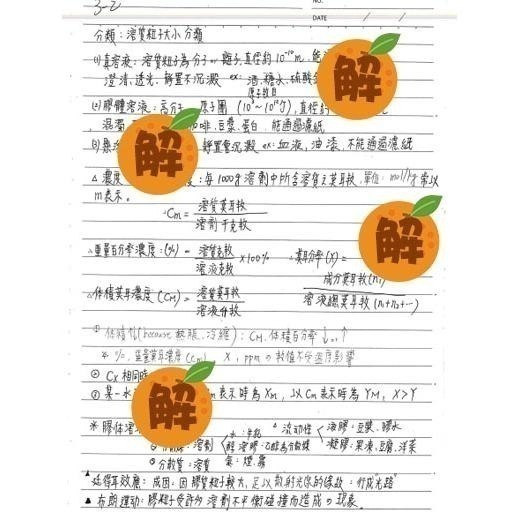 3-2
NO.
DATE / /
分類：溶質粒子大小分類
(1)真溶液：溶質粒子為分子or離子,直徑約10⁻¹⁰m,能
澄清,透光,靜置不沉澱 ex：酒,糖水,硫酸
解
原子數目
(2)膠體溶液：高分子、原子團 (10³~10⁹個),直徑約
混濁 咖啡,豆漿,蛋白,能通過濾紙
解
靜置會沉澱 ex：血液,油漆,不能通過濾紙
△濃度 度：每1000g溶劑中所含溶質之莫耳數,單位：mol/kg 常以
m表示。
Cm = 溶質莫耳數 / 溶劑千克數
解
重量百分率濃度：(%) = 溶質克數 / 溶液克數 ×100%
莫耳分率(X) = 成分莫耳數(n₁) / 溶液總莫耳數(n₁+n₂+⋯)
體積莫耳濃度(CM) = 溶質莫耳數 / 溶液升數
(because 熱脹,冷縮)：CM,體積百分率
%,重量莫耳濃度(Cm) X,ppm の數值不受溫度影響
Cx相同時
解
某一水 m表示時為Xm,以CM表示時為YM,X>Y
※膠體溶
溶劑 水：牛乳
醇溶膠：乙醇為分散媒
氣：煙,霧
△流動性 溶膠：豆漿,膠水
凝膠：果凍,豆腐,洋菜
分散質：溶質
▲廷得耳效應：成因：因膠質粒子較大,足以散射光線的緣故：形成"光路"
▲布朗運動：膠粒子受許多溶劑不平衡碰撞而造成の現象.